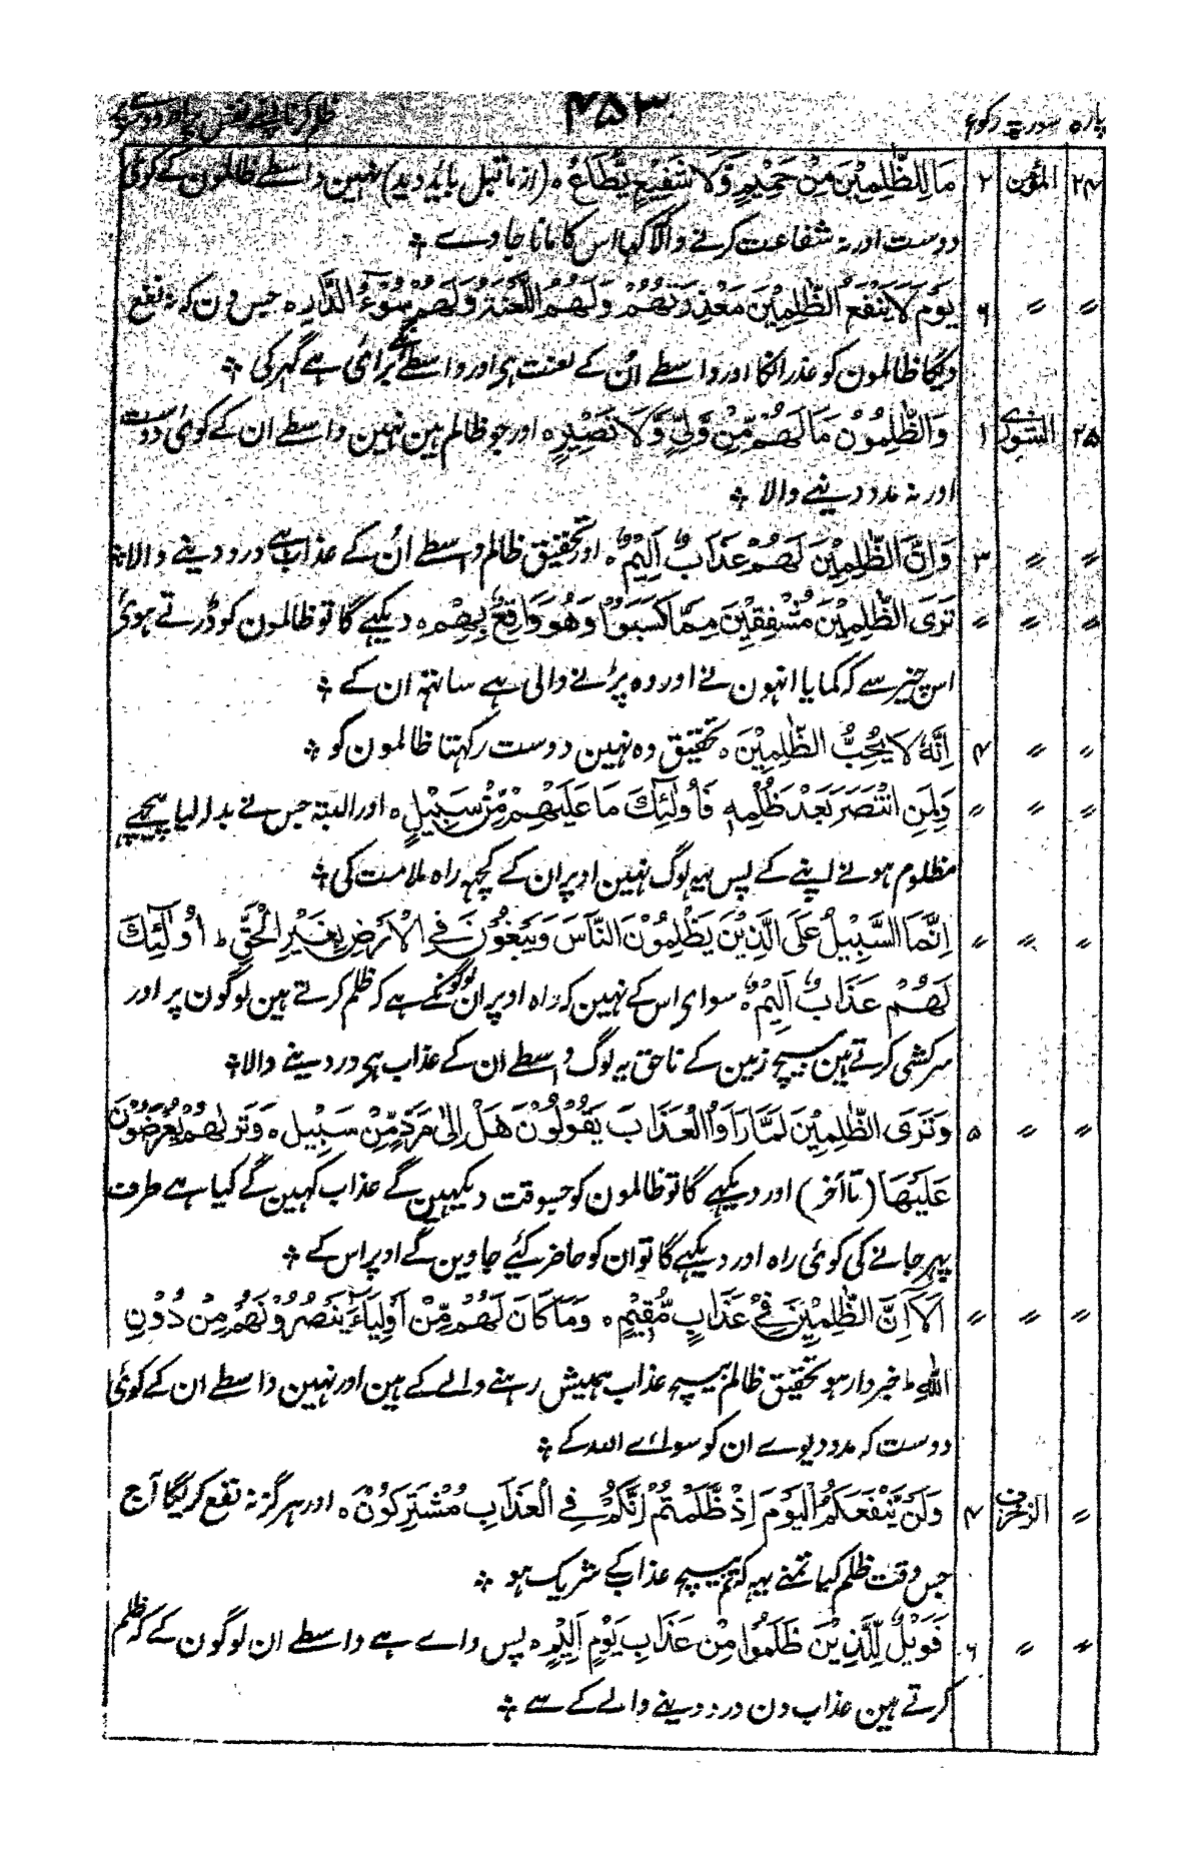 پارہ سورۃ رکوع ۴۵۳ ظلم کرنا اپنے نفس پر اور دوسرے پر
۲۴ المؤمن ۲ مَا لِلظّٰلِمِيْنَ مِنْ حَمِيْمٍ وَّلَا شَفِيْعٍ يُّطَاعُ ہ (از ماقبل باید دید) نہین واسطے ظالمون کے کوئی
دوست اور نہ شفاعت کرنے والا کہ کہا اس کا مانا جاوے ؞
〃 〃 ۶ يَوْمَ لَا يَنْفَعُ الظّٰلِمِيْنَ مَعْذِرَتُهُمْ وَلَهُمُ اللَّعْنَةُ وَلَهُمْ سُوْٓءُ الدَّارِ ہ جس دن کہ نہ نفع
دیگا ظالمون کو عذر انکا اور واسطے اُن کے لعنت ہی اور واسطے انکے برائی ہے گہر کی ؞
۲۵ الشوریٰ ۱ وَالظّٰلِمُوْنَ مَا لَهُمْ مِّنْ وَّلِيٍّ وَّلَا نَصِيْرٍ ہ اور جو ظالم ہین نہین واسطے ان کے کوئی دوست
اور نہ مدد دینے والا ؞
〃 〃 ۳ وَاِنَّ الظّٰلِمِيْنَ لَهُمْ عَذَابٌ اَلِيْمٌ ہ اور تحقیق ظالم واسطے اُن کے عذاب ہے درد دینے والا ؞
〃 〃 〃 تَرَى الظّٰلِمِيْنَ مُشْفِقِيْنَ مِمَّا كَسَبُوْا وَهُوَ وَاقِعٌۢ بِهِمْ ہ دیکہے گا تو ظالمون کو ڈرتے ہوئی
اس چیز سے کہ کمایا انہون نے اور وہ پڑنے والی ہے ساتہہ ان کے ؞
〃 〃 ۴ اِنَّهٗ لَا يُحِبُّ الظّٰلِمِيْنَ ہ تحقیق وہ نہین دوست رکہتا ظالمون کو ؞
〃 〃 〃 وَلَمَنِ انْتَصَرَ بَعْدَ ظُلْمِهٖ فَاُولٰٓئِكَ مَا عَلَيْهِمْ مِّنْ سَبِيْلٍ ہ اور البتہ جس نے بدلا لیا پیچہے
مظلوم ہونے اپنے کے پس یہ لوگ نہین اوپر ان کے کچہہ راہ ملامت کی ؞
〃 〃 〃 اِنَّمَا السَّبِيْلُ عَلَى الَّذِيْنَ يَظْلِمُوْنَ النَّاسَ وَيَبْغُوْنَ فِي الْاَرْضِ بِغَيْرِ الْحَقِّ ط اُولٰٓئِكَ
لَهُمْ عَذَابٌ اَلِيْمٌ ہ سوای اس کے نہین کہ راہ اوپر ان لوگونکے ہے کہ ظلم کرتے ہین لوگون پر اور
سرکشی کرتے ہین بیچ زمین کے ناحق یہ لوگ واسطے ان کے عذاب ہی درد دینے والا ؞
〃 〃 ۵ وَتَرَى الظّٰلِمِيْنَ لَمَّا رَاَوُا الْعَذَابَ يَقُوْلُوْنَ هَلْ اِلٰى مَرَدٍّ مِّنْ سَبِيْلٍ ہ وَتَرٰىهُمْ يُعْرَضُوْنَ
عَلَيْهَا (تا آخر) اور دیکہے گا تو ظالمون کو جسوقت دیکہین گے عذاب کہین گے کیا ہے طرف
پہر جانے کی کوئی راہ اور دیکہے گا تو ان کو حاضر کئے جاوین گے اوپر اس کے ؞
〃 〃 〃 اَلَآ اِنَّ الظّٰلِمِيْنَ فِيْ عَذَابٍ مُّقِيْمٍ ہ وَمَا كَانَ لَهُمْ مِّنْ اَوْلِيَآءَ يَنْصُرُوْنَهُمْ مِّنْ دُوْنِ
اللّٰهِ ط خبردار ہو تحقیق ظالم بیچ عذاب ہمیش رہنے والے کے ہین اور نہین واسطے ان کے کوئی
دوست کہ مدد دیوے ان کو سوائے اللہ کے ؞
〃 الزخرف ۴ وَلَنْ يَّنْفَعَكُمُ الْيَوْمَ اِذْ ظَّلَمْتُمْ اَنَّكُمْ فِي الْعَذَابِ مُشْتَرِكُوْنَ ہ اور ہرگز نہ نفع کریگا آج
جس وقت ظلم کیا تمنے یہہ کہ تم بیچ عذاب کے شریک ہو ؞
〃 〃 ۶ فَوَيْلٌ لِّلَّذِيْنَ ظَلَمُوْا مِنْ عَذَابِ يَوْمٍ اَلِيْمٍ ہ پس واے ہے واسطے ان لوگون کے کہ ظلم
کرتے ہین عذاب دن درد دینے والے کے سے ؞